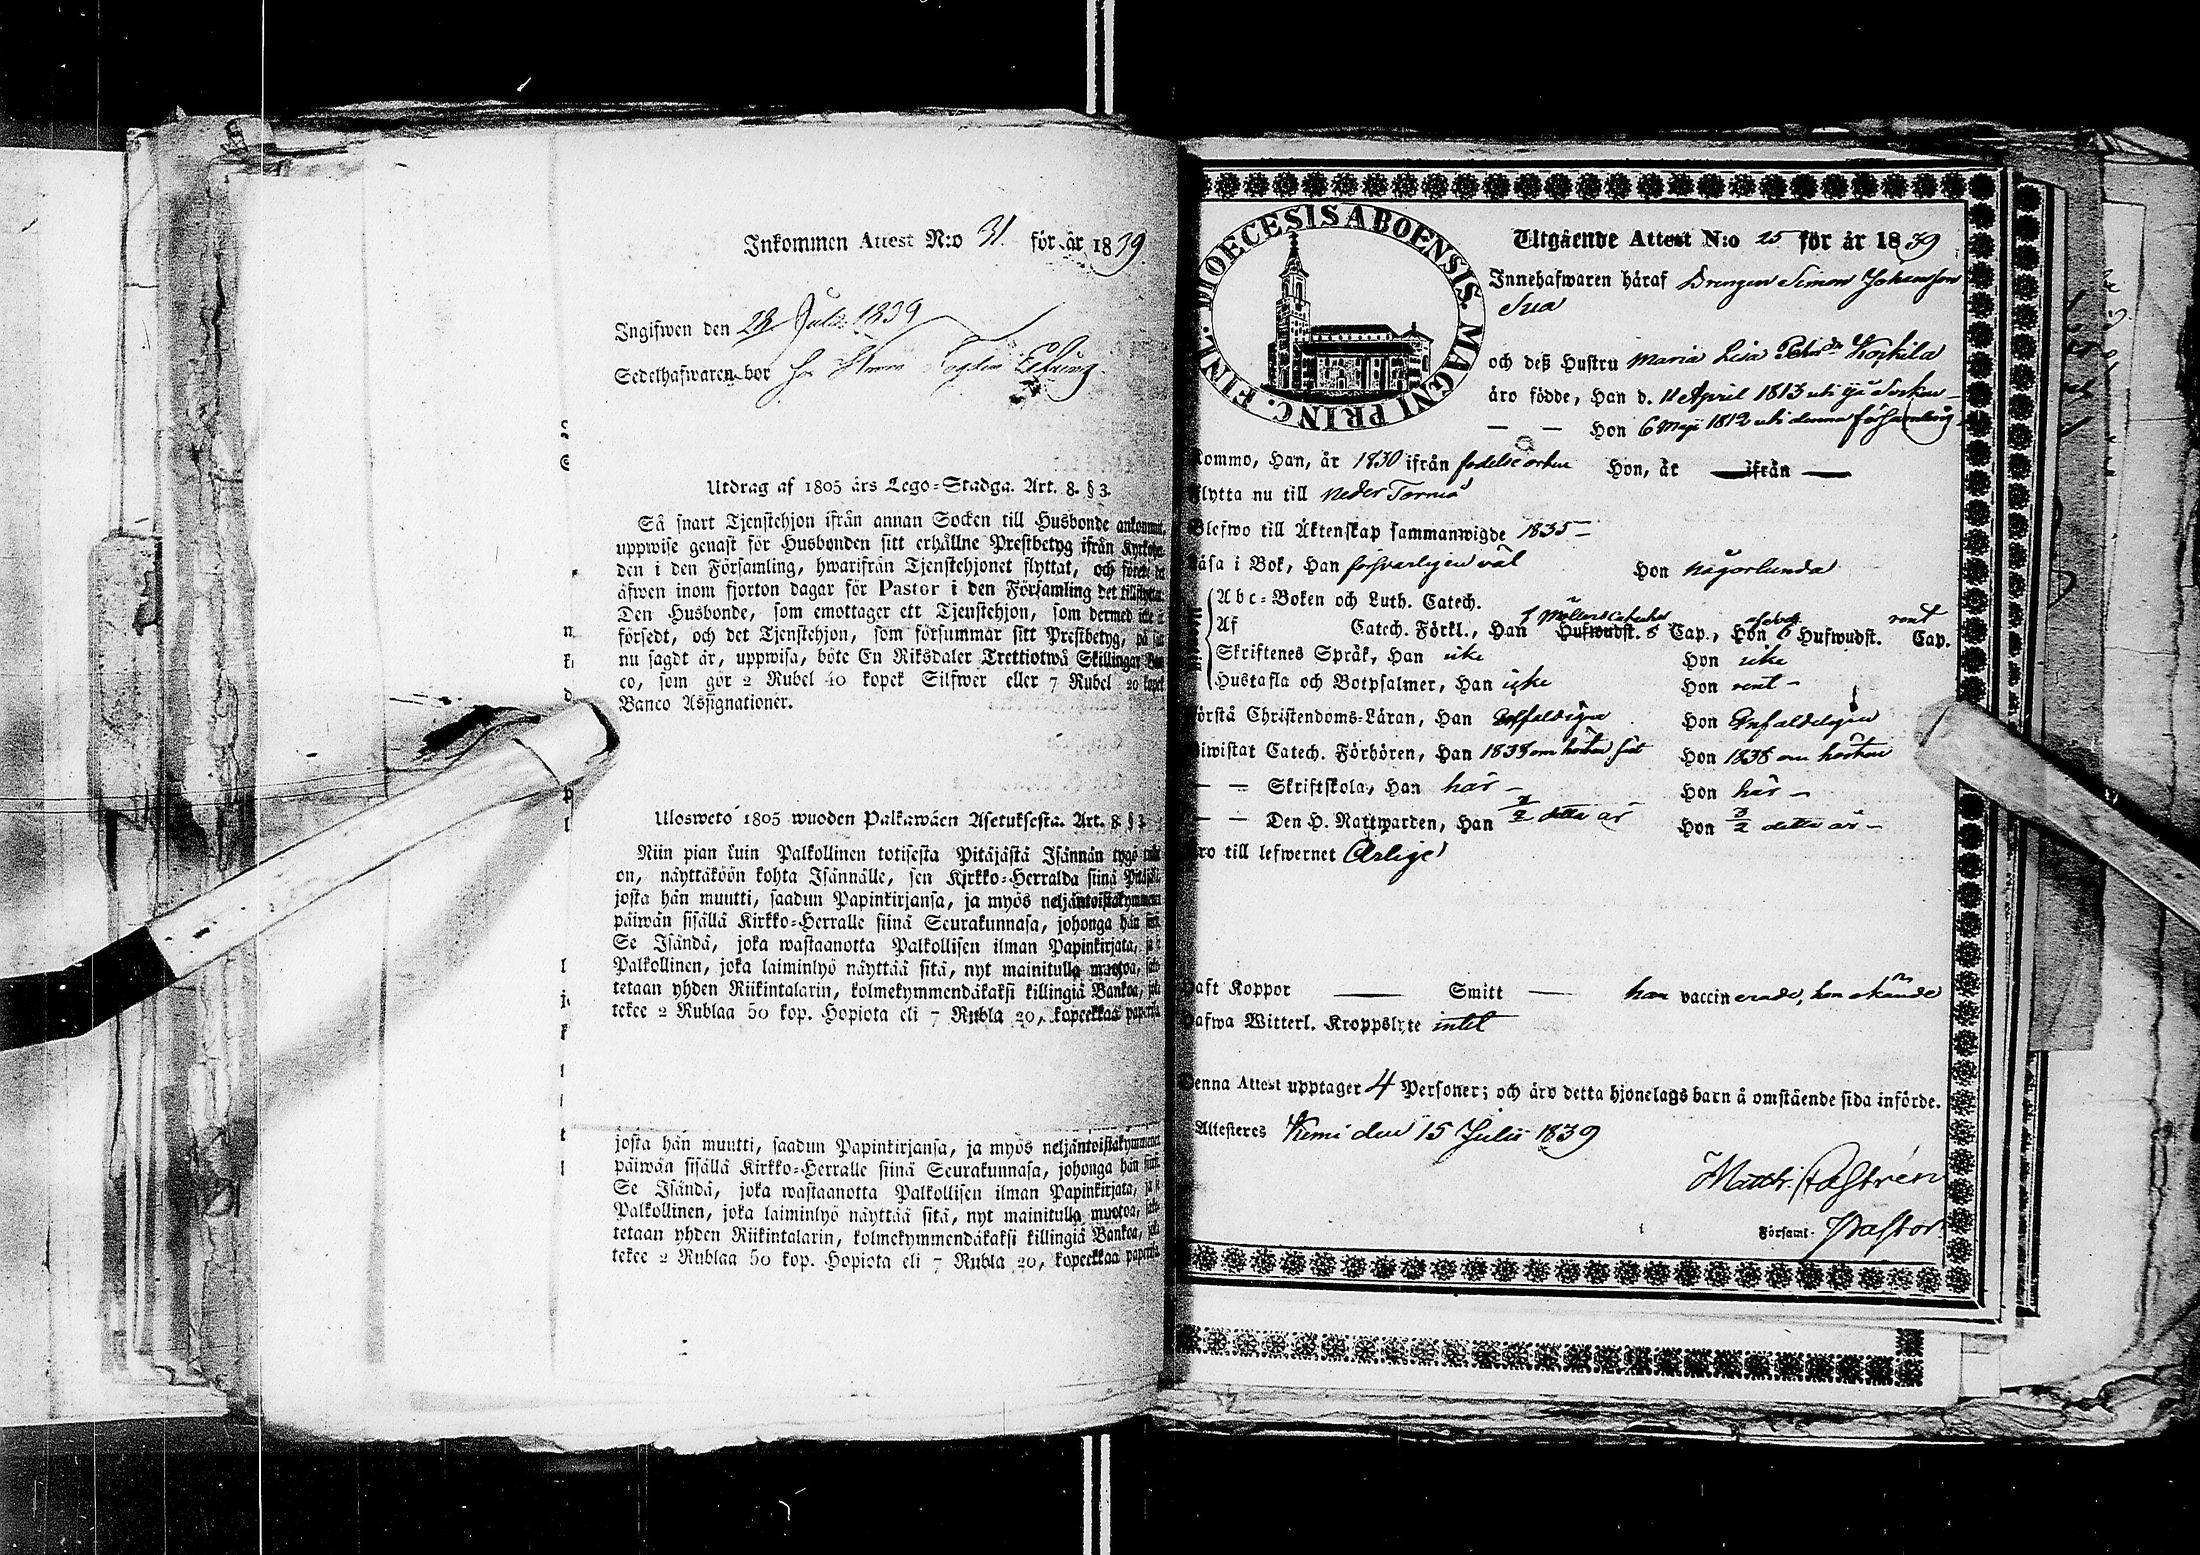 Inkommen Attest N:o 31. för år 1839
Ingifwen den 28 Julii 1839
Sedelhafwaren bor hos Herr
Utdrag af 1805 års Lego-Stadga. Art. 8. § 3.
Så snart Tjenstehjon ifrån annan Socken till Husbonde ankommit,
uppwise genast för Husbonden sitt erhållne Prestbetyg ifrån
den i den Församling, hwarifrån Tjenstehjonet flyttat, och
äfwen inom fjorton dagar för Pastor i den Församling det
Den Husbonde, som emottager ett Tjenstehjon, som dermed icke är
försedt, och det Tjenstehjon, som försummar sitt Prestbetyg, på
nu sagdt är, uppwisa, böte En Riksdaler Trettiotwå Skillingar Ban
co, som gör 2 Rubel 40 kopek Silfwer eller 7 Rubel 20 kopek
Banco Assignationer.
Uloswetö 1805 wuoden Palkawäen Asetuksesta. Art. 8 § 3
Niin pian kuin Palkollinen totisesta Pitäjästä Isännän tygö
on, näyttäköön kohta Isännälle, sen Kirkko-Herralda siinä
josta hän muutti, saadun Papinkirjansa, ja myös neljäntoistakymmenen
päiwän sisällä Kirkko-Herralle siinä Seurakunnasa, johonga hän
Se Isändä, joka wastaanotta Palkollisen ilman Papinkirjata,
Palkollinen, joka laiminlyö näyttää sitä, nyt mainitulla muotoa,
tetaan yhden Riikintalarin, kolmekymmendäkaksi killingiä Bankoa,
tekee 2 Rublaa 50 kop. Hopiota eli 7 Rubla 20, kopeekkaa
josta hän muutti, saadun Papinkirjansa, ja myös neljäntoistakymmenen
päiwän sisällä Kirkko-Herralle siinä Seurakunnasa, johonga hän
Se Isändä, joka wastaanotta Palkollisen ilman Papinkirjata,
Palkollinen, joka laiminlyö näyttää sitä, nyt mainitulla muotoa,
tetaan yhden Riikintalarin, kolmekymmendäkaksi killingiä Bankoa,
tekee 2 Rublaa 50 kop. Hopiota eli 7 Rubla 20, kopeekkaa
DIOECESIS ABOENSIS. MAGNI PRINC. FINL.
Utgående Attest N:o 25 för år 1839
Innehafwaren häraf Drengen Simon Johansson
och deß Hustru Maria Lisa Pehrsdr Koskila
äro födde, Han d. 11 April 1813 uti Ijå Socken
— — Hon 6 Maji 1812 uti denna församling
Kommo, Han, år 1830 ifrån födelseorten Hon, år — ifrån —
Flytta nu till Neder Torneå
Blefwo till Äktenskap sammanwigde 1835 —
Läsa i Bok, Han försvarligen väl Hon någorlunda
Abc-Boken och Luth. Catech.
Af Catech. Förkl., Han Hufwudst. 5 Cap., Hon 6 Hufwudst. rent Cap.
Skriftenes Språk, Han icke Hon icke
Hustafla och Botpsalmer, Han icke Hon rent —
Förstå Christendoms-Läran, Han Enfaldigen Hon Enfaldeligen
Biwistat Catech. Förhören, Han 1838 om hösten Hon 1838 om hösten
— — Skriftskola, Han här — Hon här —
— — Den H. Nattwarden, Han detta år Hon 3/2 detta år —
Äro till lefwernet Ärlige
Haft Koppor — Smitt — han vaccinerade, hon
Hafwa Witterl. Kroppslyte intet
Denna Attest upptager 4 Personer; och äro detta hjonelags barn å omstående sida införde.
Attesteres Kemi den 15 Julii 1839
Matth. Castrén
Församl. Pastor.